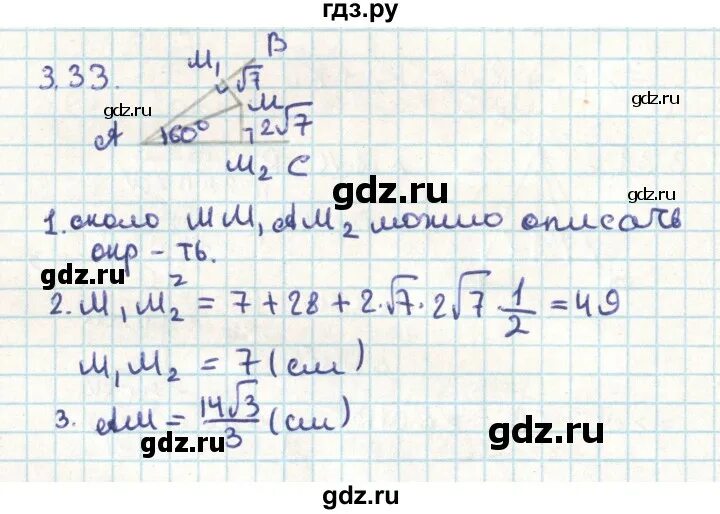 гдз.ру
3.33.
M₁ B
√7
gdz.ru
M
A 60° 2√7
M₂ C
gdz.ru
gdz.ru
gdz.ru
1. около MM₁AM₂ можно описать
окр-ть.
gdz.ru
2. M₁M₂² = 7 + 28 + 2·√7·2√7·1/2 = 49
M₁M₂ = 7 (см)
3. AM = 14√3/3 (см)
gdz.ru
gdz.ru
gdz.ru